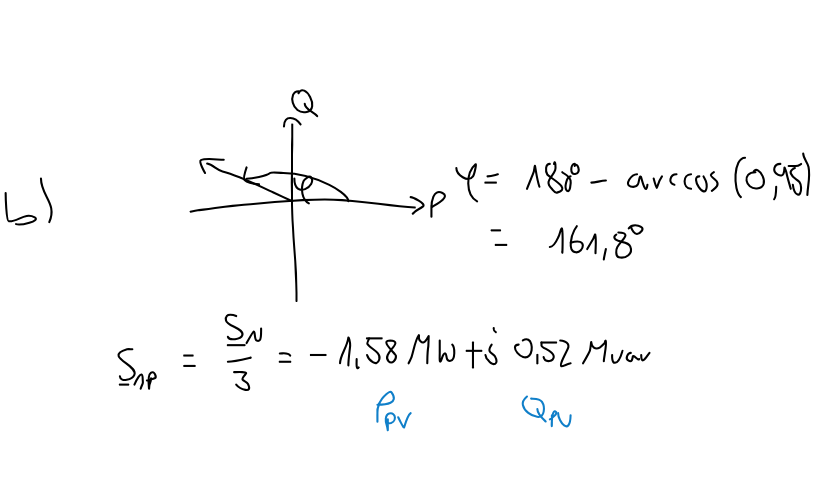 Q
b)
φ
P
φ = 180° - arccos (0,95)
= 161,8°
S_1P = S_N / 3 = - 1,58 MW + j 0,52 Mvar
P_PV Q_PV